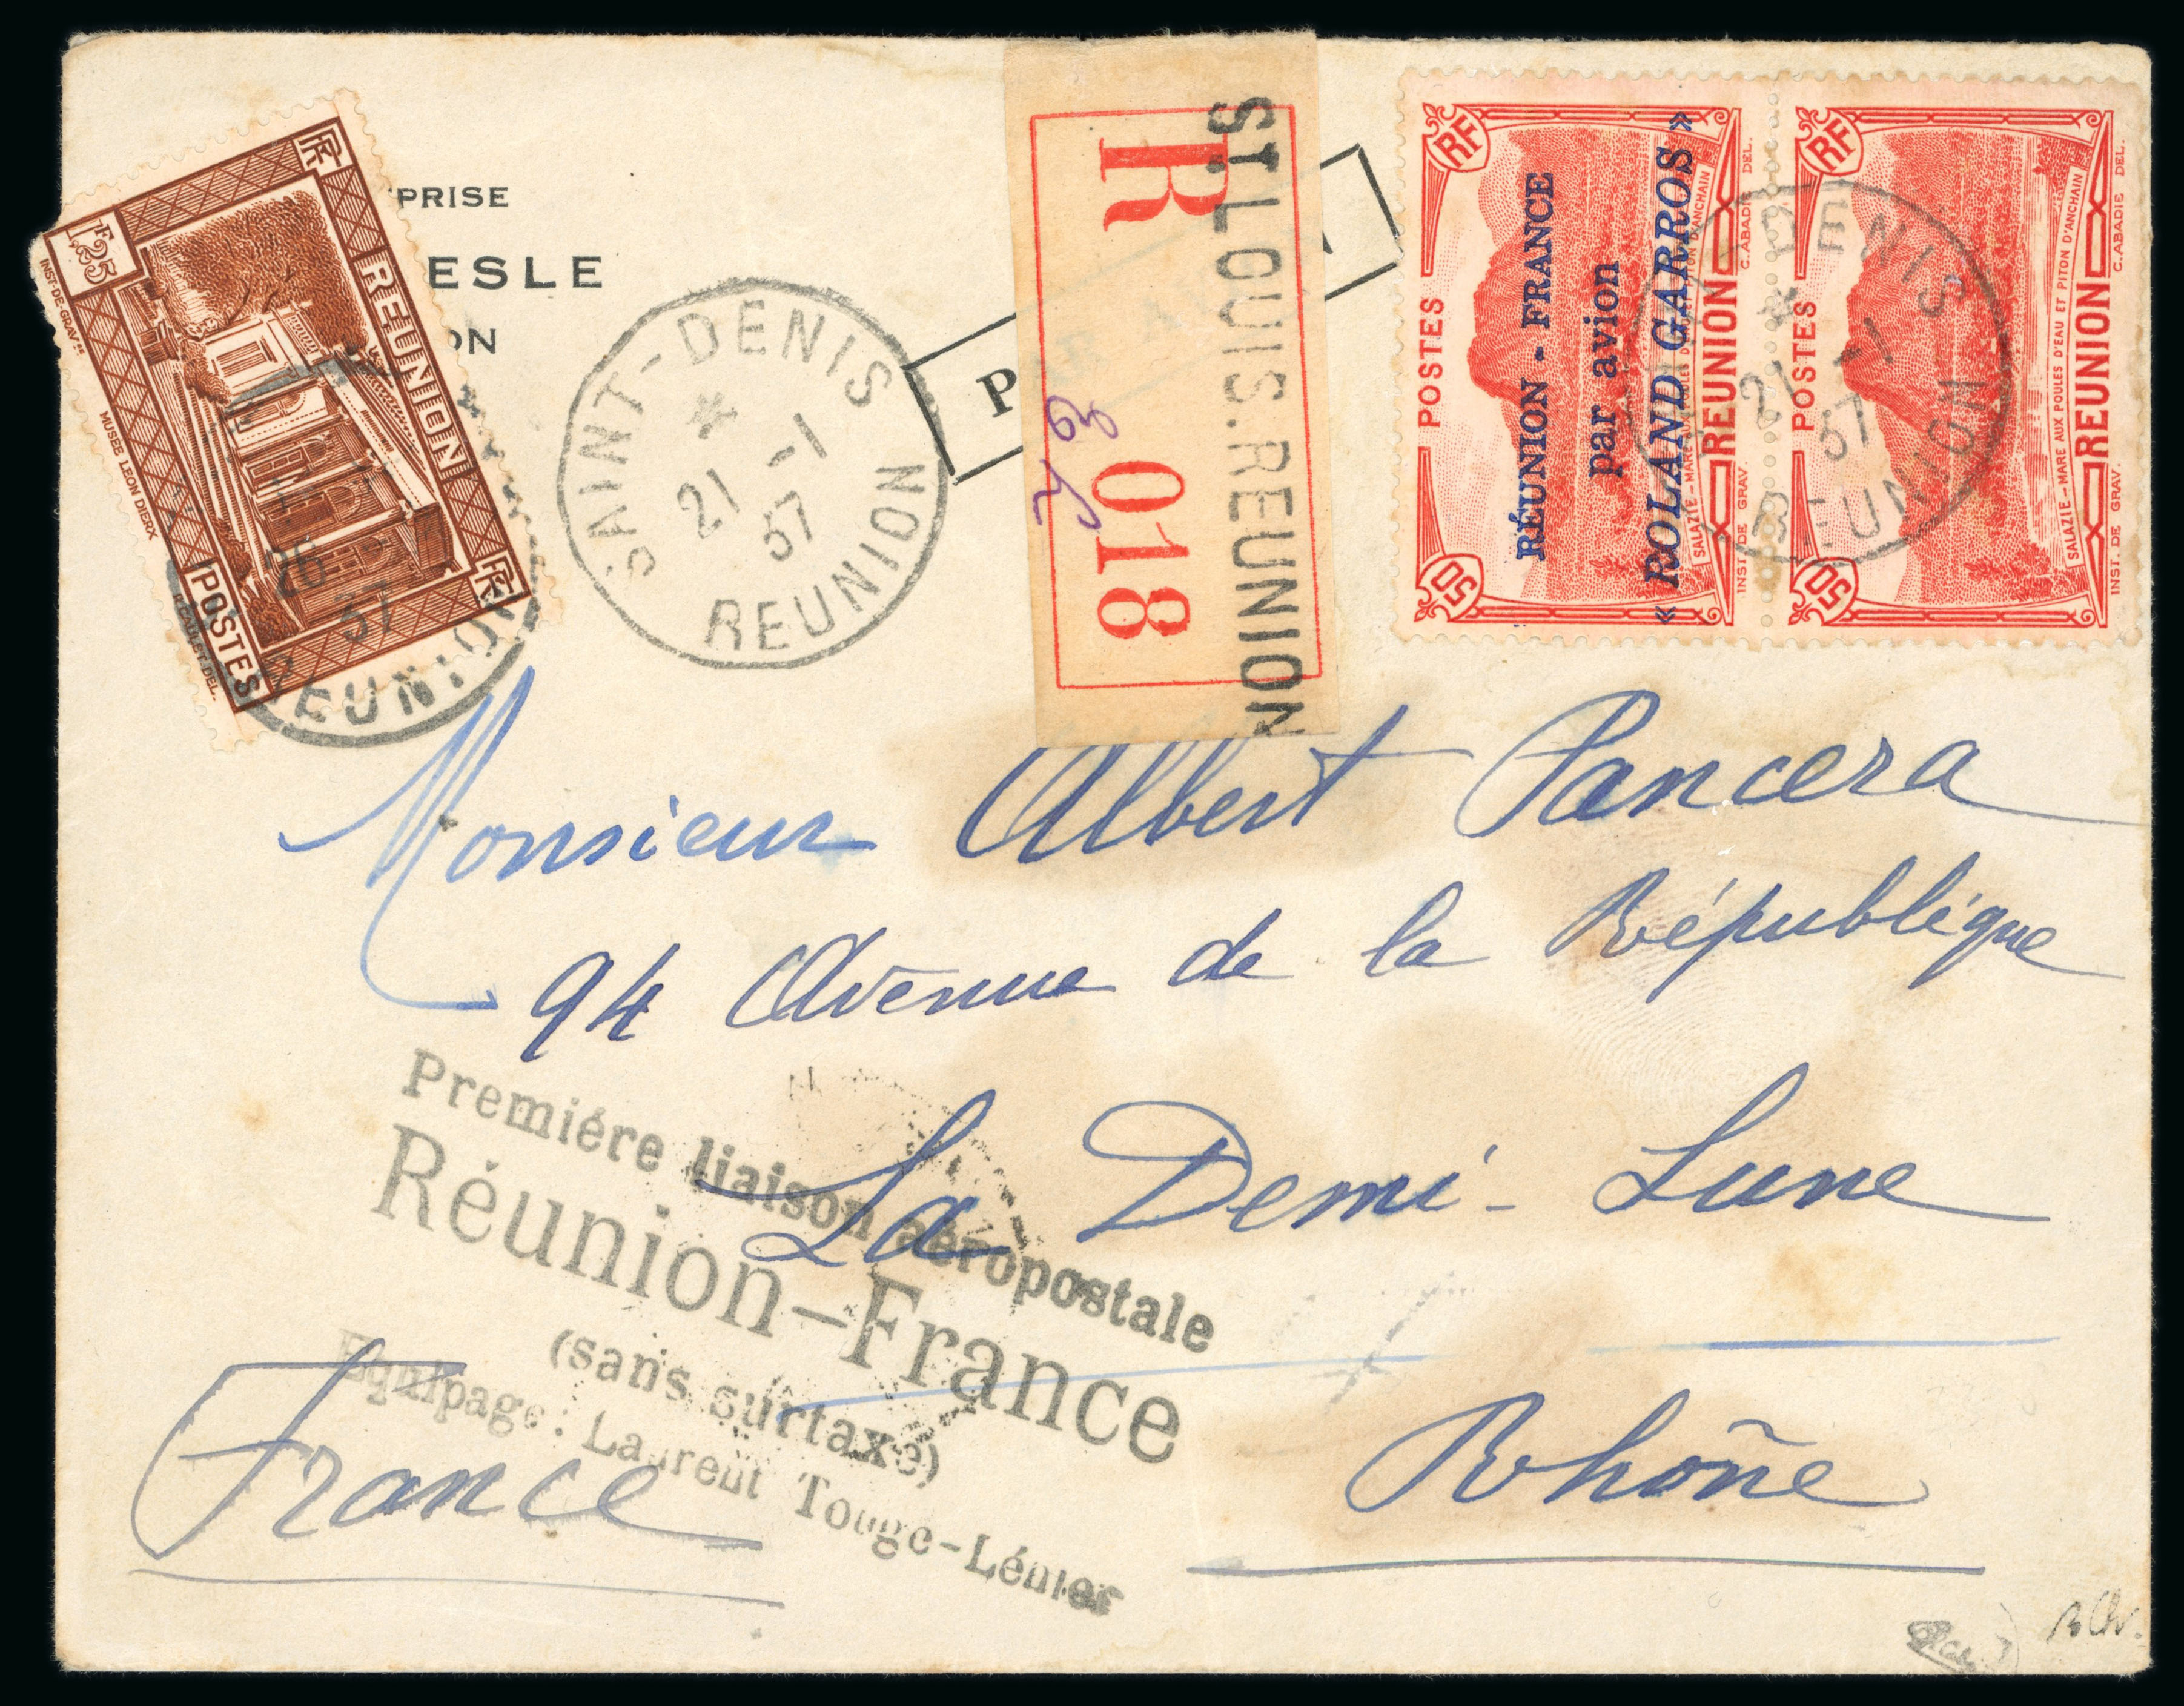 PRISE
ESLE
ON
RF
1F,25
REUNION
RF
POSTES
INST. DE GRAV.
MUSEE LEON DIERX
R. CAULET DEL.
26
37
REUNION
SAINT-DENIS
*
21 -1
37
REUNION
PAR AVION
R
018
ST. LOUIS. REUNION
RF
POSTES
50
RÉUNION - FRANCE
par avion
« ROLAND GARROS »
REUNION
INST. DE GRAV.
C. ABADIE DEL.
RF
POSTES
50
SALAZIE - MARE AUX POULES D'EAU ET PITON D'ANCHAIN
REUNION
INST. DE GRAV.
C. ABADIE DEL.
SAINT-DENIS
*
21 -1
37
REUNION
Monsieur Albert Pancera
94 Avenue de la République
La Demi-Lune
Rhône
France
Premiére liaison aéropostale
Réunion-France
(sans surtaxe)
Equipage: Laurent Touge-Lénier